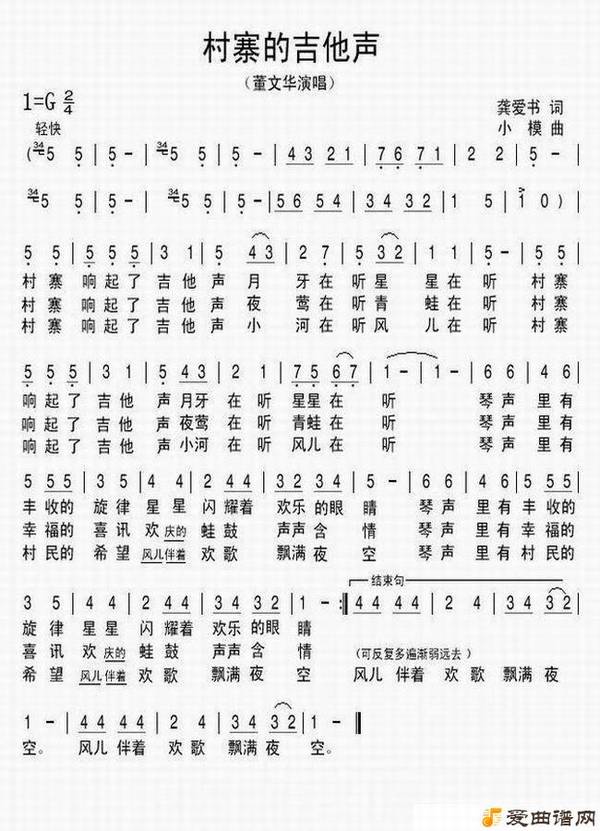 村寨的吉他声
（董文华演唱）
1=G 2/4
龚爱书 词
轻快
小模 曲
(34 5 5 | 5 - | 34 5 5 | 5 - | 43 21 | 76 71 | 2 2 | 5 - |
34 5 5 | 5 - | 34 5 5 | 5 - | 56 54 | 34 32 | 1 5 | 1 0 ) |
5 5 | 55 55 | 3 1 | 5 43 | 2 1 | 75 32 | 1 1 | 5 - | 5 5 |
村寨 响起了 吉他 声 月 牙在 听星 星在 听 村寨
村寨 响起了 吉他 声 夜 莺在 听青 蛙在 听 村寨
村寨 响起了 吉他 声 小 河在 听风 儿在 听 村寨
55 5 | 3 1 | 5 43 | 2 1 | 75 67 | 1 - | 1 - | 6 6 | 4 6 |
响起 了 吉他 声 月牙 在 听 星星 在 听 琴声 里有
响起 了 吉他 声 夜莺 在 听 青蛙 在 听 琴声 里有
响起 了 吉他 声 小河 在 听 风儿 在 听 琴声 里有
5 55 | 3 5 | 4 4 | 2 44 | 32 34 | 5 - | 6 6 | 4 6 | 5 55 |
丰 收的 旋律 星星 闪 耀着 欢乐 的眼 睛 琴声 里有 丰 收的
幸 福的 喜讯 欢 庆的 蛙 鼓 声声 含 情 琴声 里有 幸 福的
村 民的 希望 风儿伴着 欢 歌 飘满 夜 空 琴声 里有 村 民的
结束句
3 5 | 4 4 | 2 44 | 34 32 | 1 - :‖ 44 44 | 2 4 | 34 32 |
旋律 星星 闪 耀着 欢乐 的眼 睛
喜讯 欢 庆的 蛙 鼓 声声 含 情 （可反复多遍渐弱远去）
希望 风儿伴着 欢 歌 飘满 夜 空 风儿 伴着 欢 歌 飘满 夜
1 - | 44 44 | 2 4 | 34 32 | 1 - ‖
空。 风儿 伴着 欢 歌 飘满 夜 空。
爱曲谱网